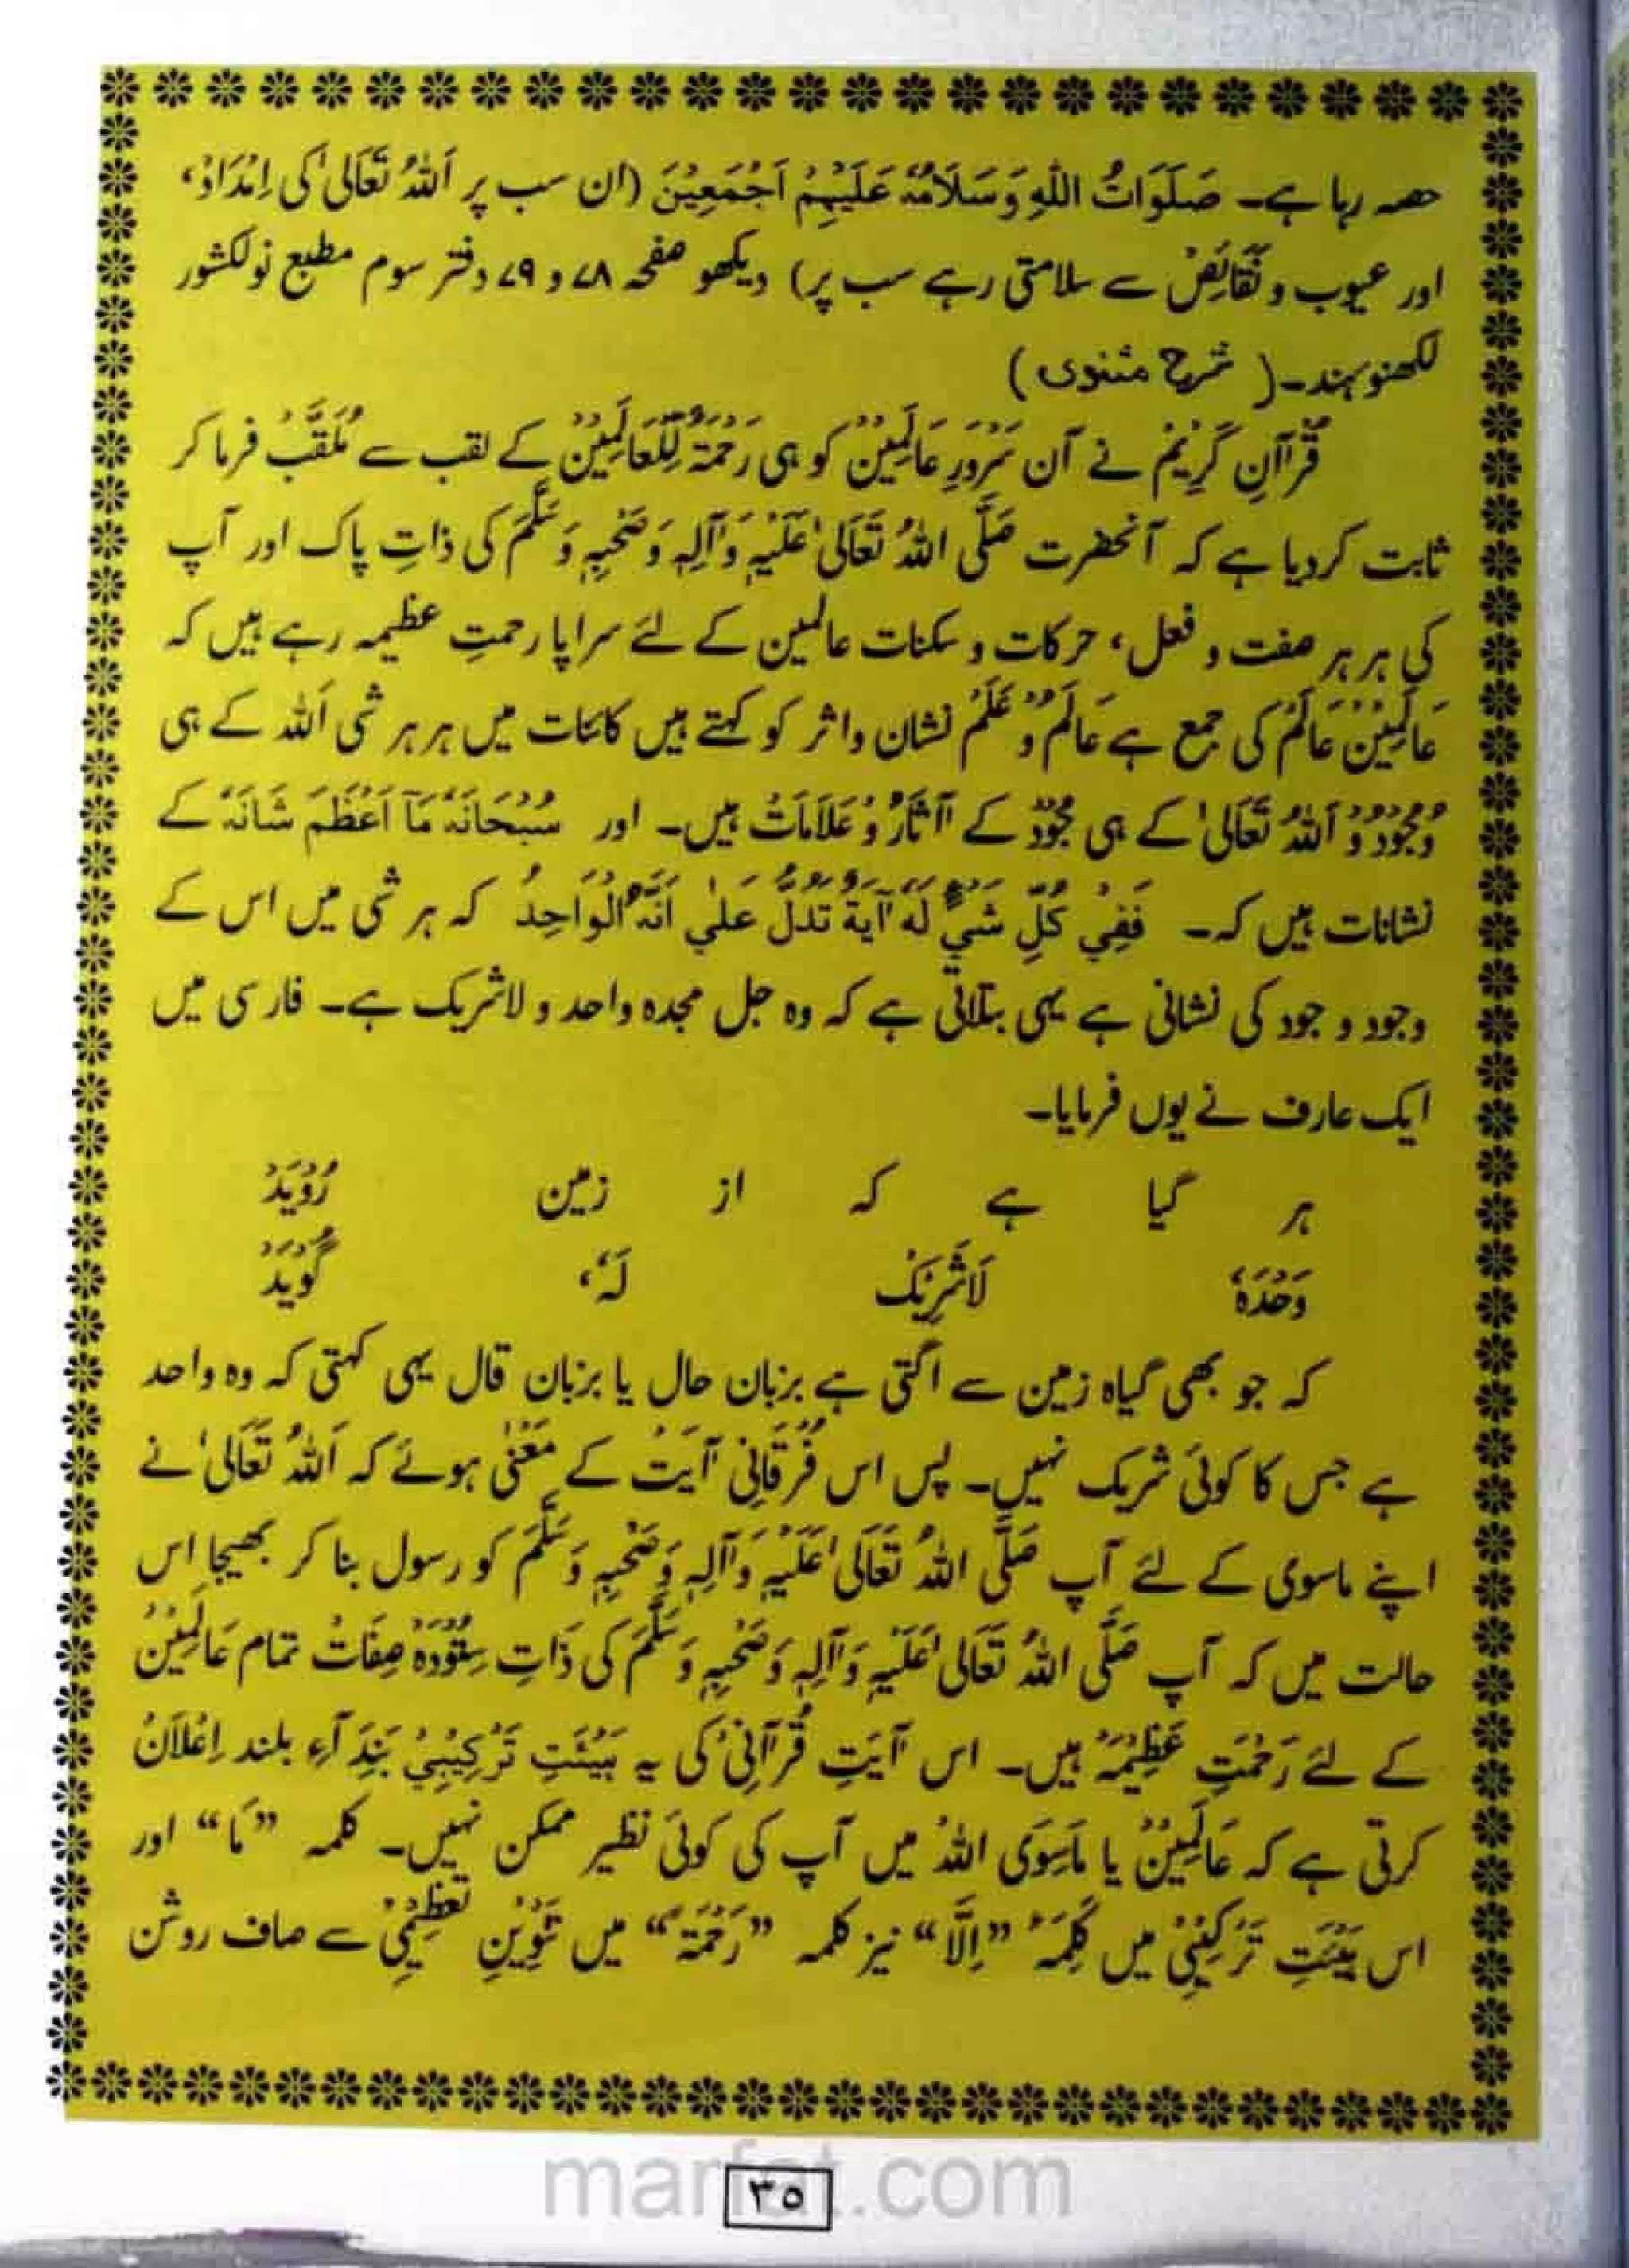 حصہ رہا ہے۔ صَلَوَاتُ اللّٰهِ وَسَلَامُہٗ عَلَیْہِمْ اَجْمَعِیْنَ (ان سب پر اَللّٰہُ تَعَالیٰ کی اِمْدَادْ،
اور عیوب و نَقَائِصْ سے سلامتی رہے سب پر) دیکھو صفحہ ۷۸ و ۷۹ دفتر سوم مطبع نولکشور
لکھنو ہند۔ ( شرح مثنوی )
قُرْآنِ کَرِیْمْ نے آن سَرْوَرِ عَالَمِیْنْ کو ہی رَحْمَۃٌ لِّلْعَالَمِیْنْ کے لقب سے مُلَقَّبْ فرما کر
ثابت کردیا ہے کہ آنحضرت صَلَّی اللّٰہُ تَعَالیٰ عَلَیْہِ وَآلِہٖ وَصَحْبِہٖ وَسَلَّمَ کی ذاتِ پاک اور آپ
کی ہر ہر صفت و فعل، حرکات و سکنات عالمین کے لئے سراپا رحمتِ عظیمہ رہے ہیں کہ
عَالَمِیْنْ عَالَمْ کی جمع ہے عَالَمْ وَ عَلَمْ نشان و اثر کو کہتے ہیں کائنات میں ہر ہر شی اَللّٰہ کے ہی
وُجُوْدْ وْ اَللّٰہُ تَعَالیٰ کے ہی جُوْدْ کے آثَارْ وْ عَلَامَاتْ ہیں۔ اور سُبْحَانَہٗ مَآ اَعْظَمَ شَانَہٗ کے
نشانات ہیں کہ۔ فَفِيْ كُلِّ شَيْءٍ لَهٗ آيَةٌ تَدُلُّ عَلٰي اَنَّهٗ الْوَاحِدُ کہ ہر شی میں اس کے
وجود و جود کی نشانی ہے یہی بتلاتی ہے کہ وہ جل مجدہ واحد و لاشریک ہے۔ فارسی میں
ایک عارف نے یوں فرمایا۔
ہر گیا ہے کہ از زمین رُوْیَدْ
وَحْدَہٗ لَاشَرِیْکْ لَہٗ، گُوْیَدْ
کہ جو بھی گیاہ زمین سے اگتی ہے بزبان حال یا بزبان قال یہی کہتی کہ وہ واحد
ہے جس کا کوئی شریک نہیں۔ پس اس فُرْقَانِی آیَتْ کے مَعْنٰی ہوئے کہ اَللّٰہُ تَعَالیٰ نے
اپنے ماسوی کے لئے آپ صَلَّی اللّٰہُ تَعَالیٰ عَلَیْہِ وَآلِہٖ وَصَحْبِہٖ وَسَلَّمَ کو رسول بنا کر بھیجا اس
حالت میں کہ آپ صَلَّی اللّٰہُ تَعَالیٰ عَلَیْہِ وَآلِہٖ وَصَحْبِہٖ وَسَلَّمَ کی ذَاتِ سِتُوْدَہْ صِفَاتْ تمام عَالَمِیْنْ
کے لئے رَحْمَتِ عَظِیْمَہْ ہیں۔ اس آیَتِ قُرْآنِیْ کی یہ ہَیْئَتِ تَرْکِیْبِیْ بَنِدَآءِ بلند اِعْلَانْ
کرتی ہے کہ عَالَمِیْنْ یا مَاسِوَی اللّٰہْ میں آپ کی کوئی نظیر ممکن نہیں۔ کلمہ ”مَا“ اور
اس ہَیْئَتِ تَرْکِیْبِیْ میں کَلِمَہْ ”اِلَّا“ نیز کلمہ ”رَحْمَۃً“ میں تَنْوِیْنِ تَعْظِیْمِیْ سے صاف روشن
marfat.com
۳۵